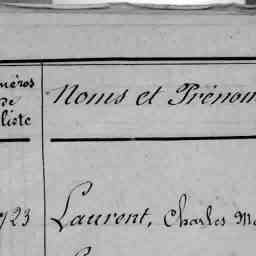 méros
de
liste
Noms et Prénom
723 Laurent, Charles Ma